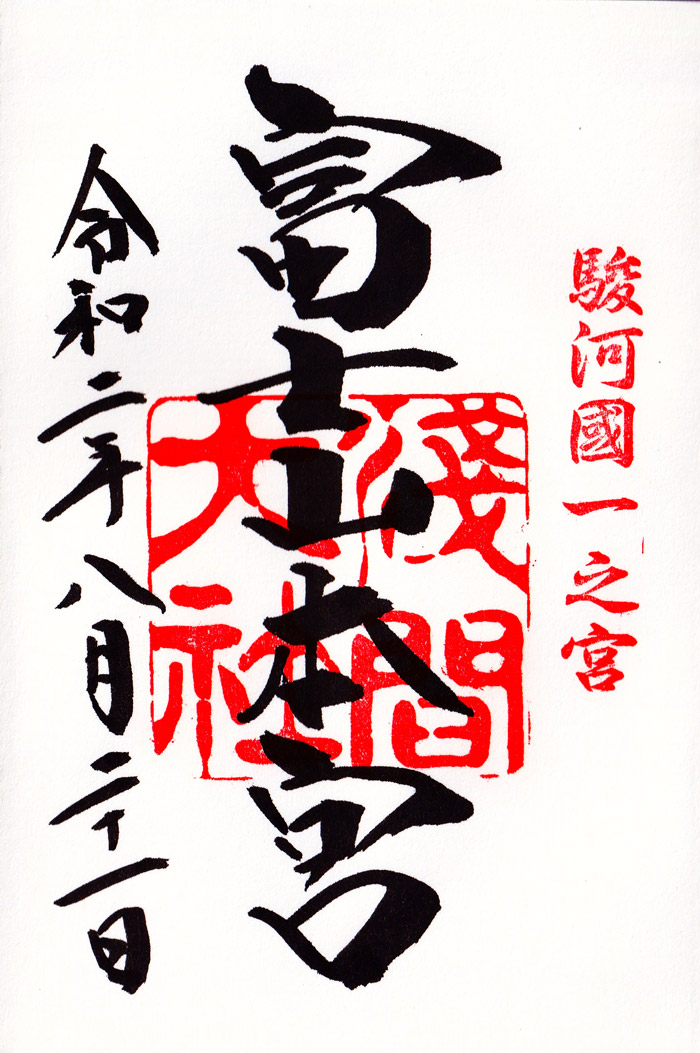 駿河國一之宮
富士山本宮
淺間
大社
令和二年八月二十一日